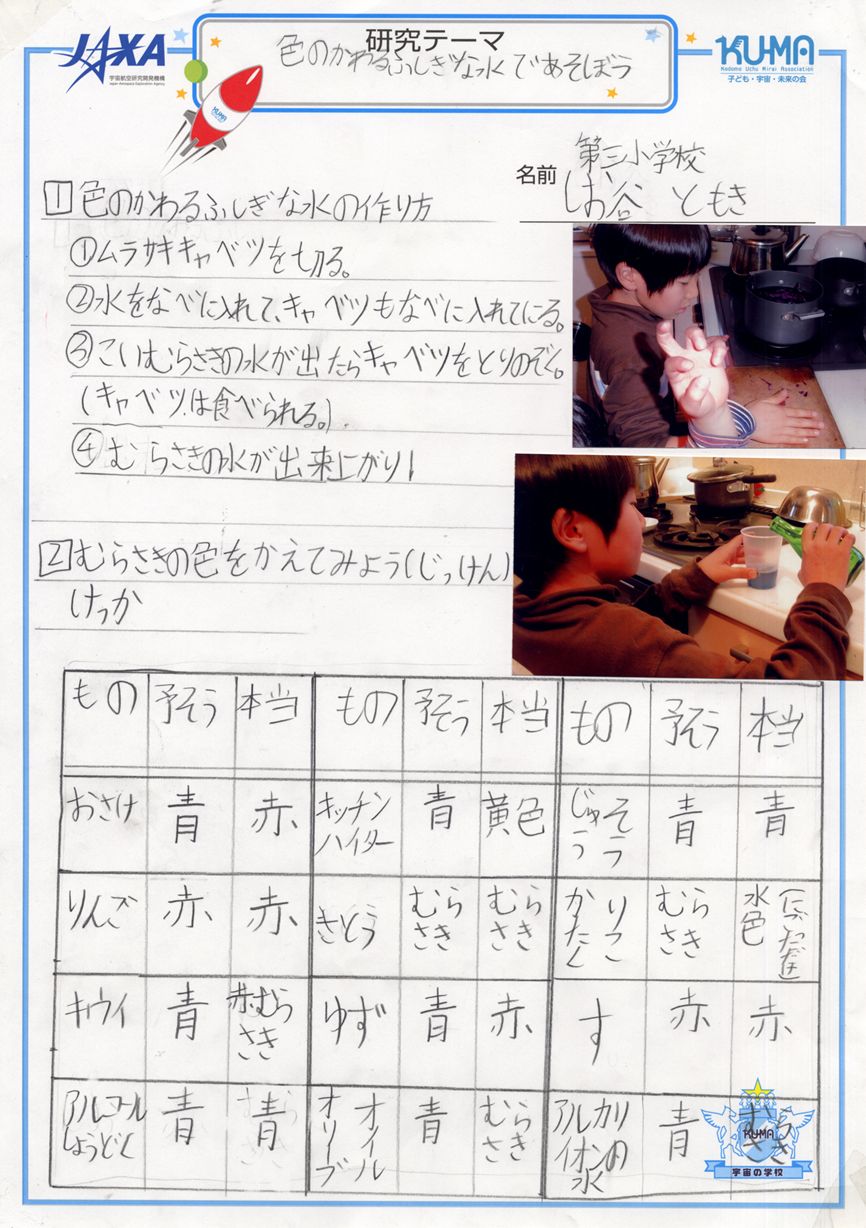 JAXA
宇宙航空研究開発機構
Japan Aerospace Exploration Agency
研究テーマ
色のかわるふしぎな水であそぼう
KU-MA
Kodomo Uchu Mirai Association
子ども・宇宙・未来の会
KUMA
名前
第三小学校
しお谷 ともき
1 色のかわるふしぎな水の作り方
①ムラサキキャベツを切る。
②水をなべに入れて、キャベツもなべに入れてにる。
③こいむらさきの水が出たらキャベツをとりのぞく。
(キャベツは食べられる。)
④むらさきの水が出来上がり!
2 むらさきの色をかえてみよう(じっけん)
けっか
もの 予そう 本当 もの 予そう 本当 もの 予そう 本当
おさけ 青 赤 キッチンハイター 青 黄色 じゅうそう 青 青
りんご 赤 赤 さとう むらさき むらさき かたくりこ むらさき 水色
キウイ 青 赤むらさき ゆず 青 赤 す 赤 赤
アルコールしょうどく 青 青 オリーブオイル 青 むらさき アルカリイオンの水 青 むらさき
KU-MA
宇宙の学校